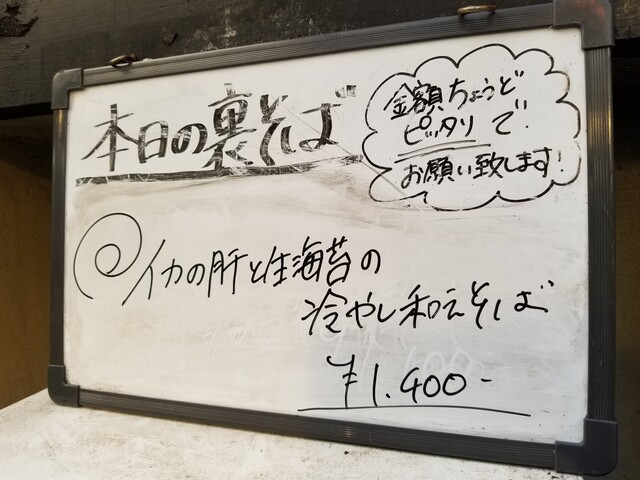 本日の裏そば
金額ちょうど
ピッタリで
お願い致します!
イカの肝と生海苔の
冷やし和えそば
¥1.400-